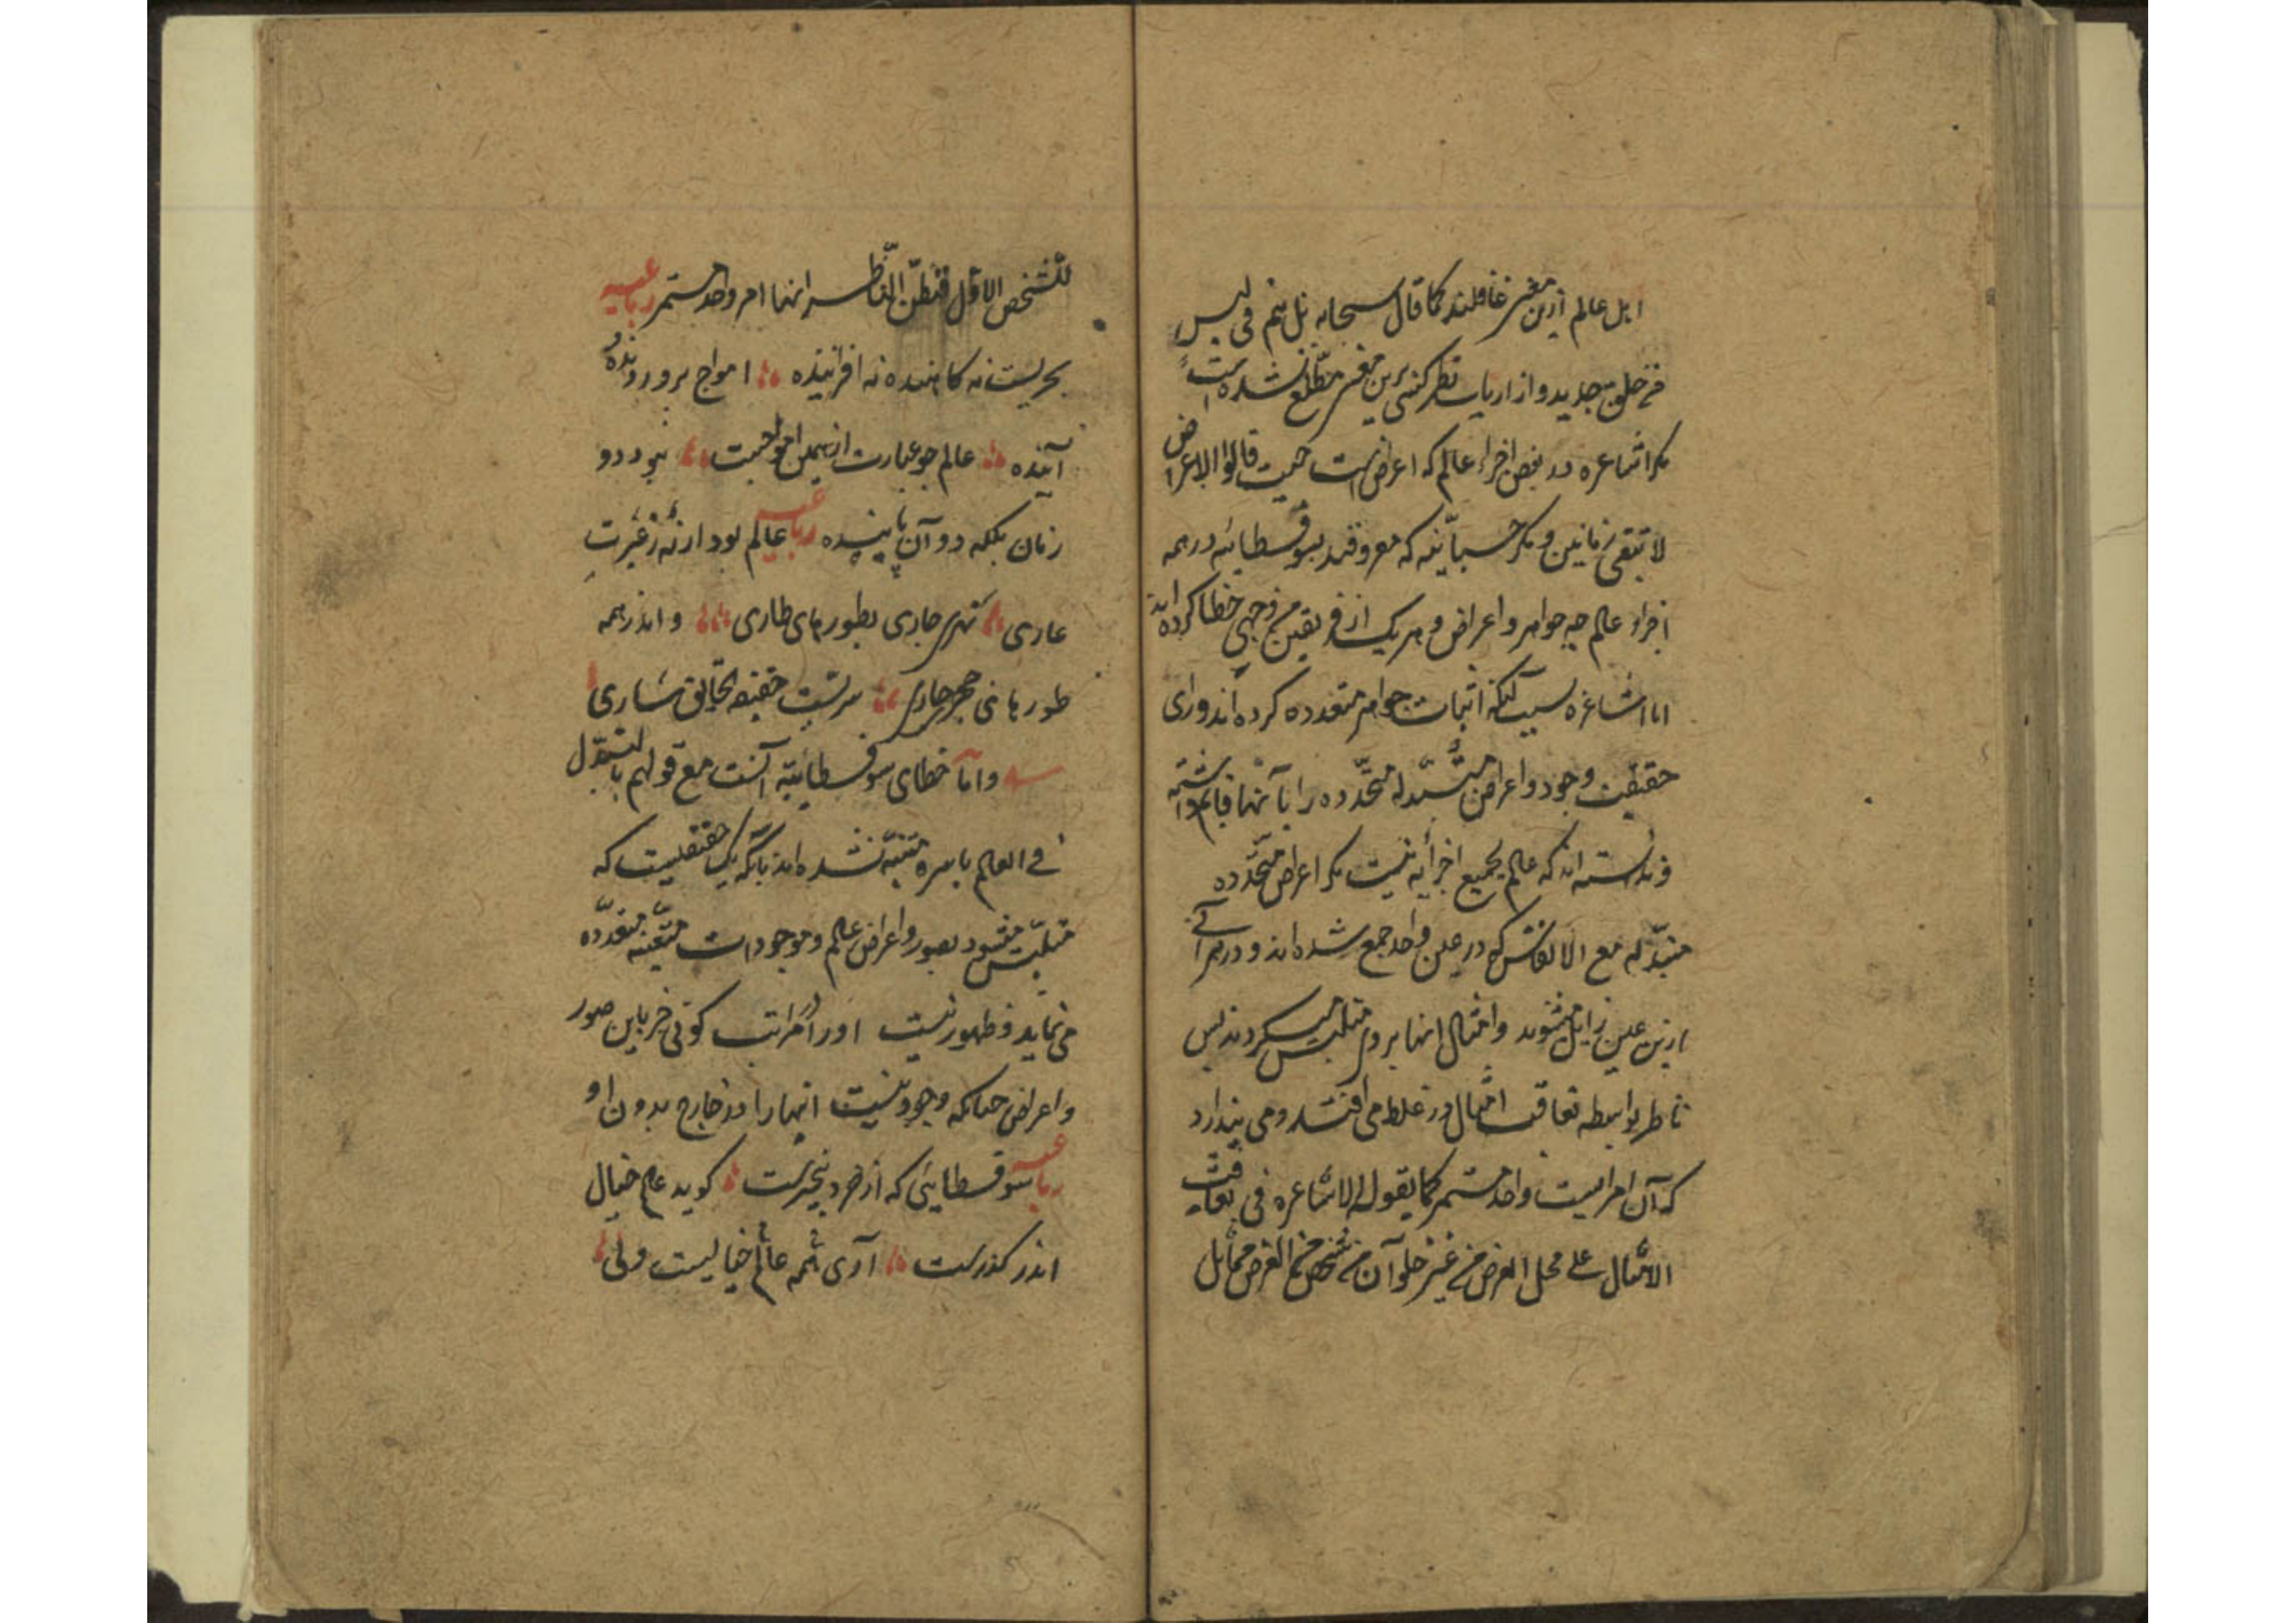 اهل عالم ازین معنی غافلند کما قال سبحانه بل هم فی لبس
من خلق جدید و از ارباب نظر کسی برین معنی مطلع نشده است
مگر اشاعره در بعض اجزاء عالم که اعراض است حیث قالوا الاعراض
لا تبقی زمانین و مگر حسبانیه که معروفند بسوفسطائیه در همه
اجزاء عالم چه جواهر و اعراض و هر یک از فریقین من وجهی خطا کرده اند
اما اشاعره بسبب آنکه اثبات جواهر متعدده کرده اند ورای
حقیقت وجود و اعراض متبدله متجدده را بآنها قایم داشته
و ندانسته اند که عالم بجمیع اجزائه نیست مگر اعراض متجدده
متبدله مع الانفاس که در عین واحد جمع شده اند و در هر آنی
ازین عین زایل میشوند و امثال انها بروی متلبس میگردند پس
ناظر بواسطه تعاقب امثال در غلط می افتد و می پندارد
که آن امریست واحد مستمر کما یقوله الاشاعره فی تعاقب
الامثال علی محل العرض من غیر خلو آن من شخص من العرض مماثل
للشخص الاول فیظن الناظر انها امر واحد مستمر رباعیه
بحریست نه کاهنده نه افزاینده امواج برو رونده و
آینده عالم چو عبارت از همین امواجست نبود دو
زمان بلکه دو آن پاینده رباعیه عالم بود ار نه ز عبرت
عاری نهری جاری بطورهای طاری و اندر همه
طورهای نهر جاری سریست حقیقه الحقایق ساری
و اما خطای سوفسطائیه آنست مع قولهم بالتبدل
فی العالم باسره متنبه نشده اند بانکه یک حقیقتست که
متلبس میشود بصور و اعراض عالم و موجودات متعینه متعدده
می نماید و ظهور نیست اورا در مراتب کونی جز باین صور
و اعراض چنانکه وجود نیست انها را در خارج بدون او
رباعیه سوفسطایی که از خرد بیخبرست گوید عالم خیال
اندر گذرست آری همه عالم خیالیست ولی